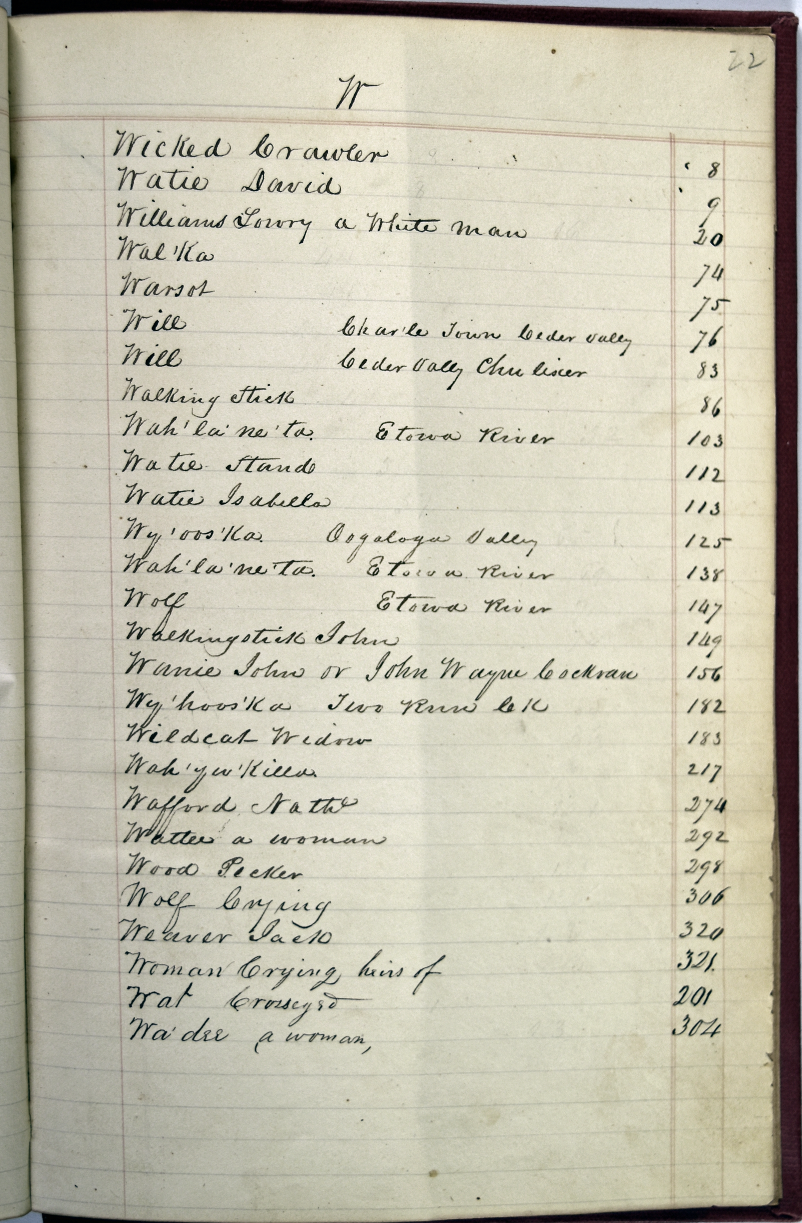 22
W
Wicked Crawler 8
Watie David 9
Williams Lowry a White man 20
Wal'Ka 74
Warsot 75
Will Char'le Town Ceder vally 76
Will Ceder Vally Chu liser 83
Walking Stick 86
Wah'la'ne'ta. Etowa River 103
Watie Stand 112
Watie Isabella 113
Wy'oos'Ka. Oogaloga Valley 125
Wah'la'ne'ta. Etowa River 138
Wolf Etowa River 147
Walkingstick John 149
Wanie John or John Wayne Cockran 156
Wy'hoos'Ka Two Run Ck 182
Wildcat Widow 183
Wah'yu'Killa 217
Wafford Nathl 274
Wattee a woman 292
Wood Pecker 298
Wolf Crying 306
Weaver Jack 320
Woman Crying heirs of 321.
Wat Crosseyed 201
Wa'dee a woman, 304